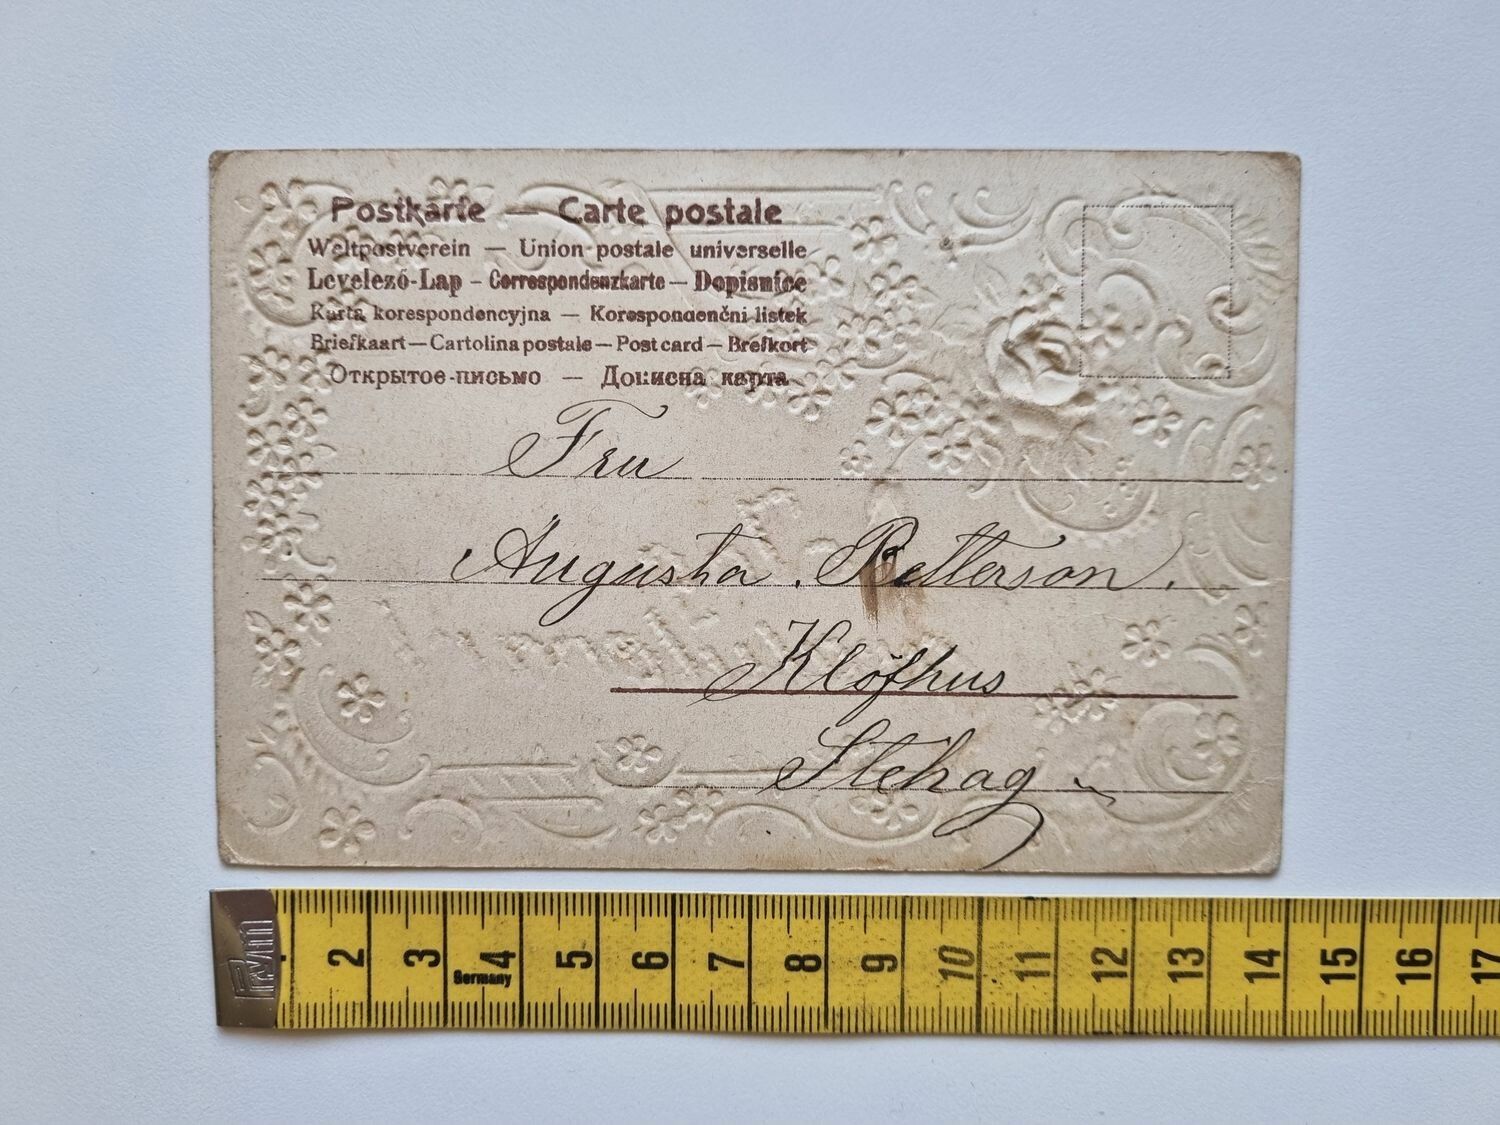 Postkarte — Carte postale
Weltpostverein — Union postale universelle
Levelező-Lap – Correspondenzkarte — Dopisnice
Karta korespondencyjna — Korespondenční listek
Briefkaart — Cartolina postale — Post card — Brefkort
Открытое-письмо — Дописна карта
Fru
Augusta. Petterson.
Klöfhus
Stehag
Prym
2 3 4 5 6 7 8 9 10 11 12 13 14 15 16 17
Germany